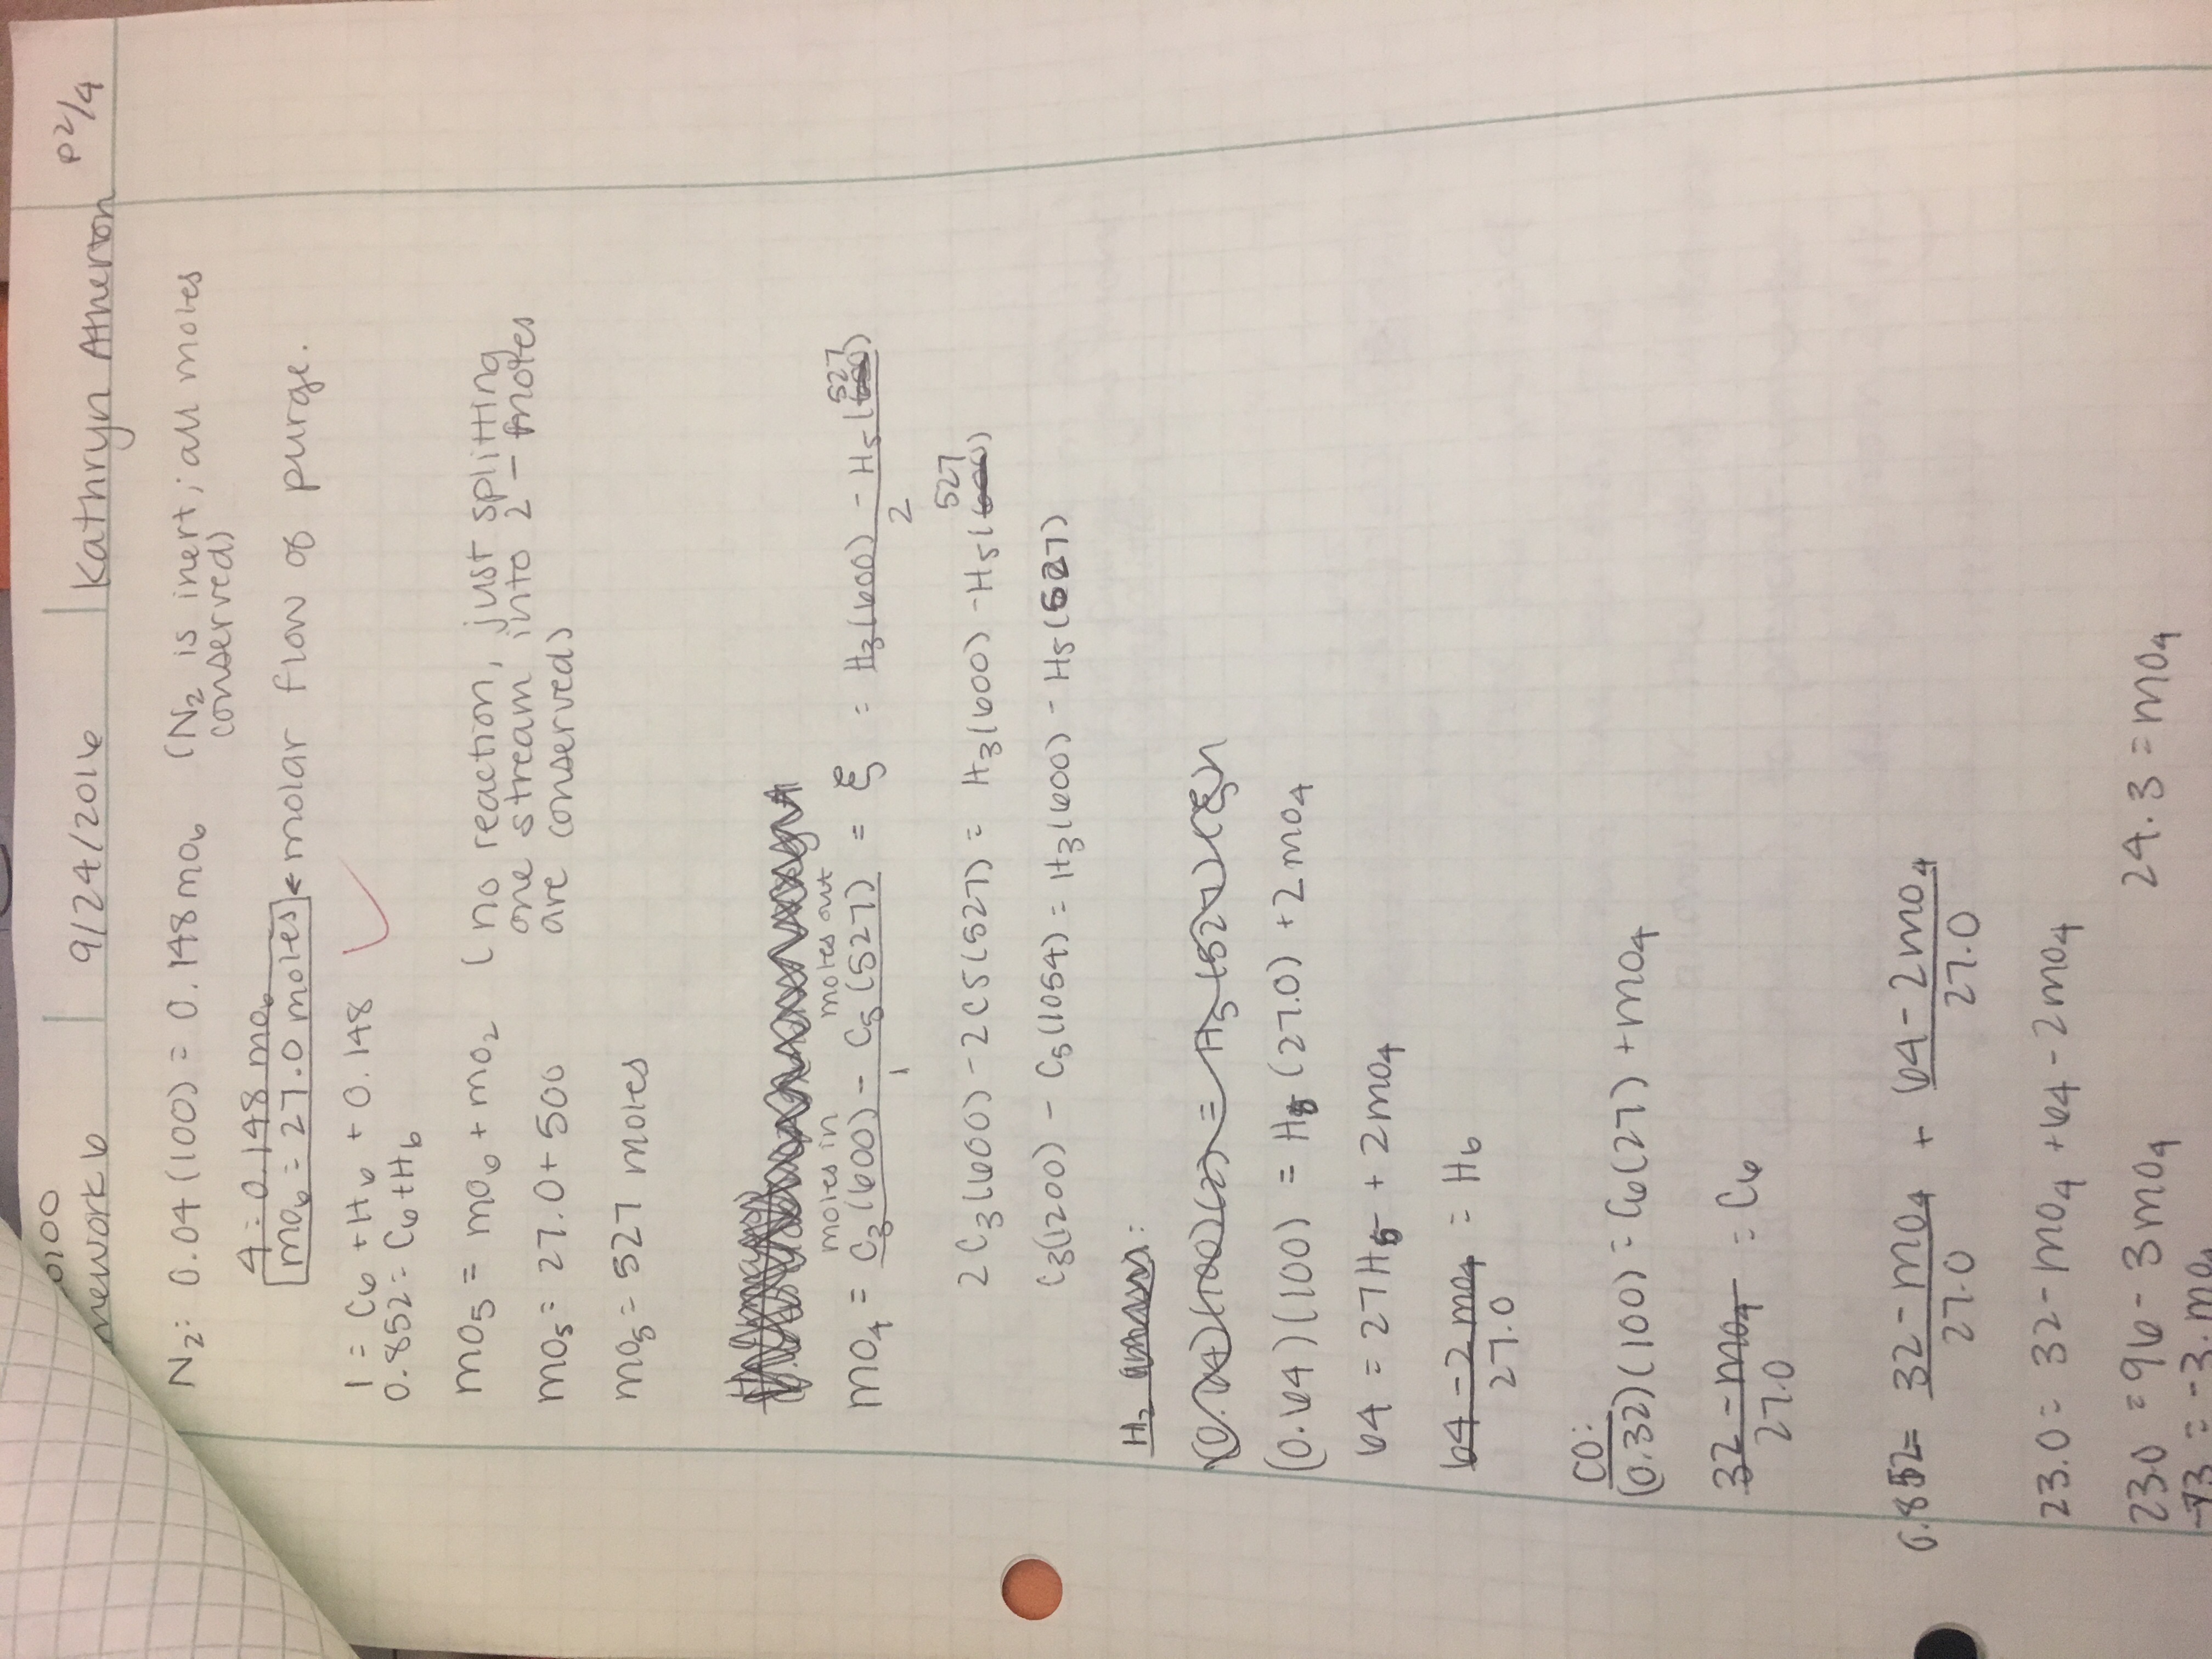 0100
mework 6 9/24/2016 Kathryn Atherton p2/4
N₂: 0.04 (100) = 0.148 mo₆ (N₂ is inert; all moles
conserved)
4 = 0.148 mo₆
mo₆ = 27.0 moles ← molar flow of purge.
1 = C₆ + H₆ + 0.148
0.852 = C₆ + H₆
mo₅ = mo₆ + mo₂ (no reaction, just splitting
one stream into 2 - moles
mo₅ = 27.0 + 500 are conserved)
mo₅ = 527 moles
moles in moles out
mo₄ = C₃(600) - C₅(527) / 1 = ξ = H₃(600) - H₅(527) / 2
2C₃(600) - 2C5(527) = H₃(600) - H₅(527)
C₃(1200) - C₅(1054) = H₃(600) - H₅(527)
H₂ :
(0.64)(100)(2) = H₅(527)(ξ)
(0.64)(100) = H₆(27.0) + 2mo₄
64 = 27H₆ + 2mo₄
64 - 2mo₄ / 27.0 = H₆
CO:
(0.32)(100) = C₆(27) + mo₄
32 - mo₄ / 27.0 = C₆
0.852 = 32 - mo₄ / 27.0 + 64 - 2mo₄ / 27.0
23.0 = 32 - mo₄ + 64 - 2mo₄
23.0 = 96 - 3mo₄ 24.3 = mo₄
-73 = -3.mo₄